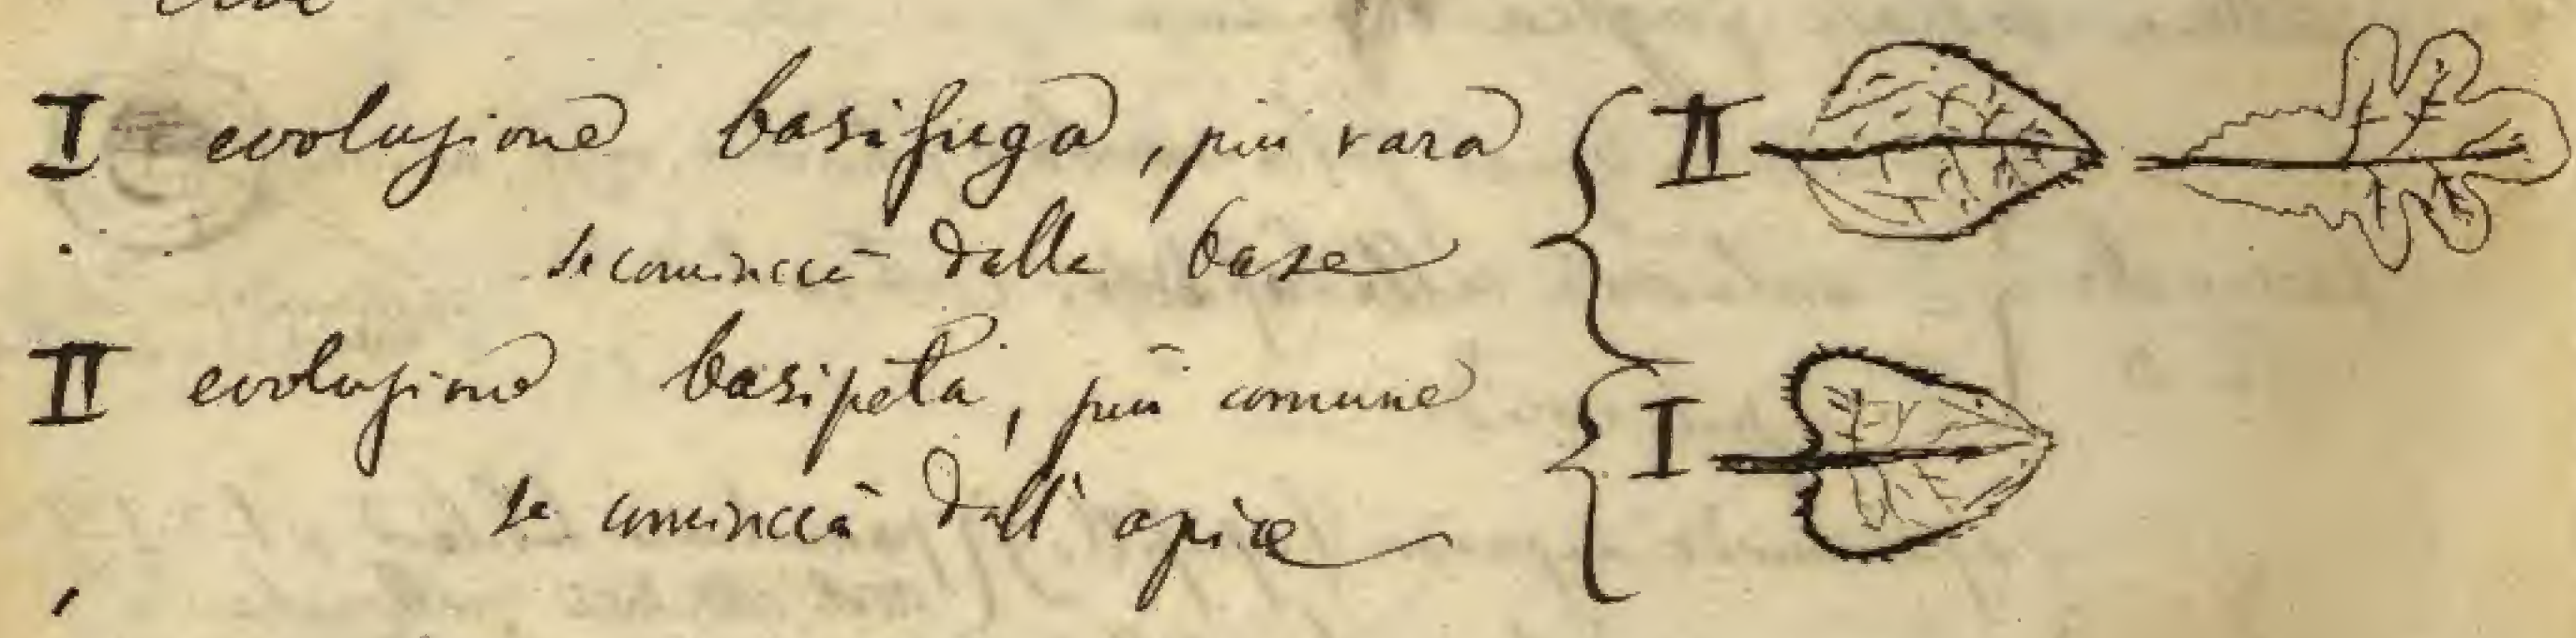 I evoluzione basifuga, più rara
si comincia dalla base
II evoluzione basipeta, più comune
si comincia dall' apice
II
I